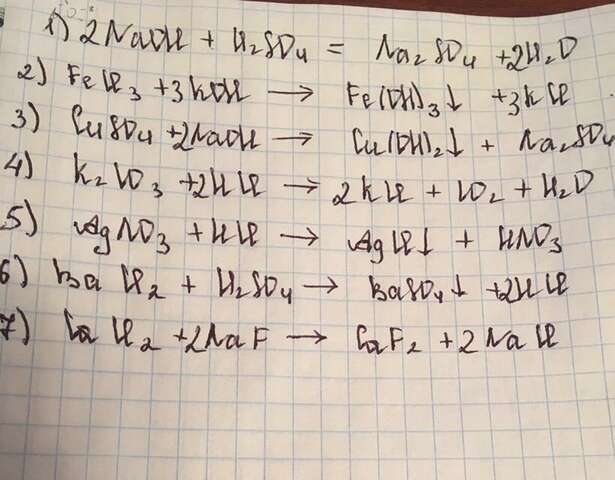 1) 2NaOH + H₂SO₄ = Na₂SO₄ + 2H₂O
2) FeCl₃ + 3KOH → Fe(OH)₃↓ + 3KCl
3) CuSO₄ + 2NaOH → Cu(OH)₂↓ + Na₂SO₄
4) K₂CO₃ + 2HCl → 2KCl + CO₂ + H₂O
5) AgNO₃ + HCl → AgCl↓ + HNO₃
6) BaCl₂ + H₂SO₄ → BaSO₄↓ + 2HCl
7) CaCl₂ + 2NaF → CaF₂ + 2NaCl